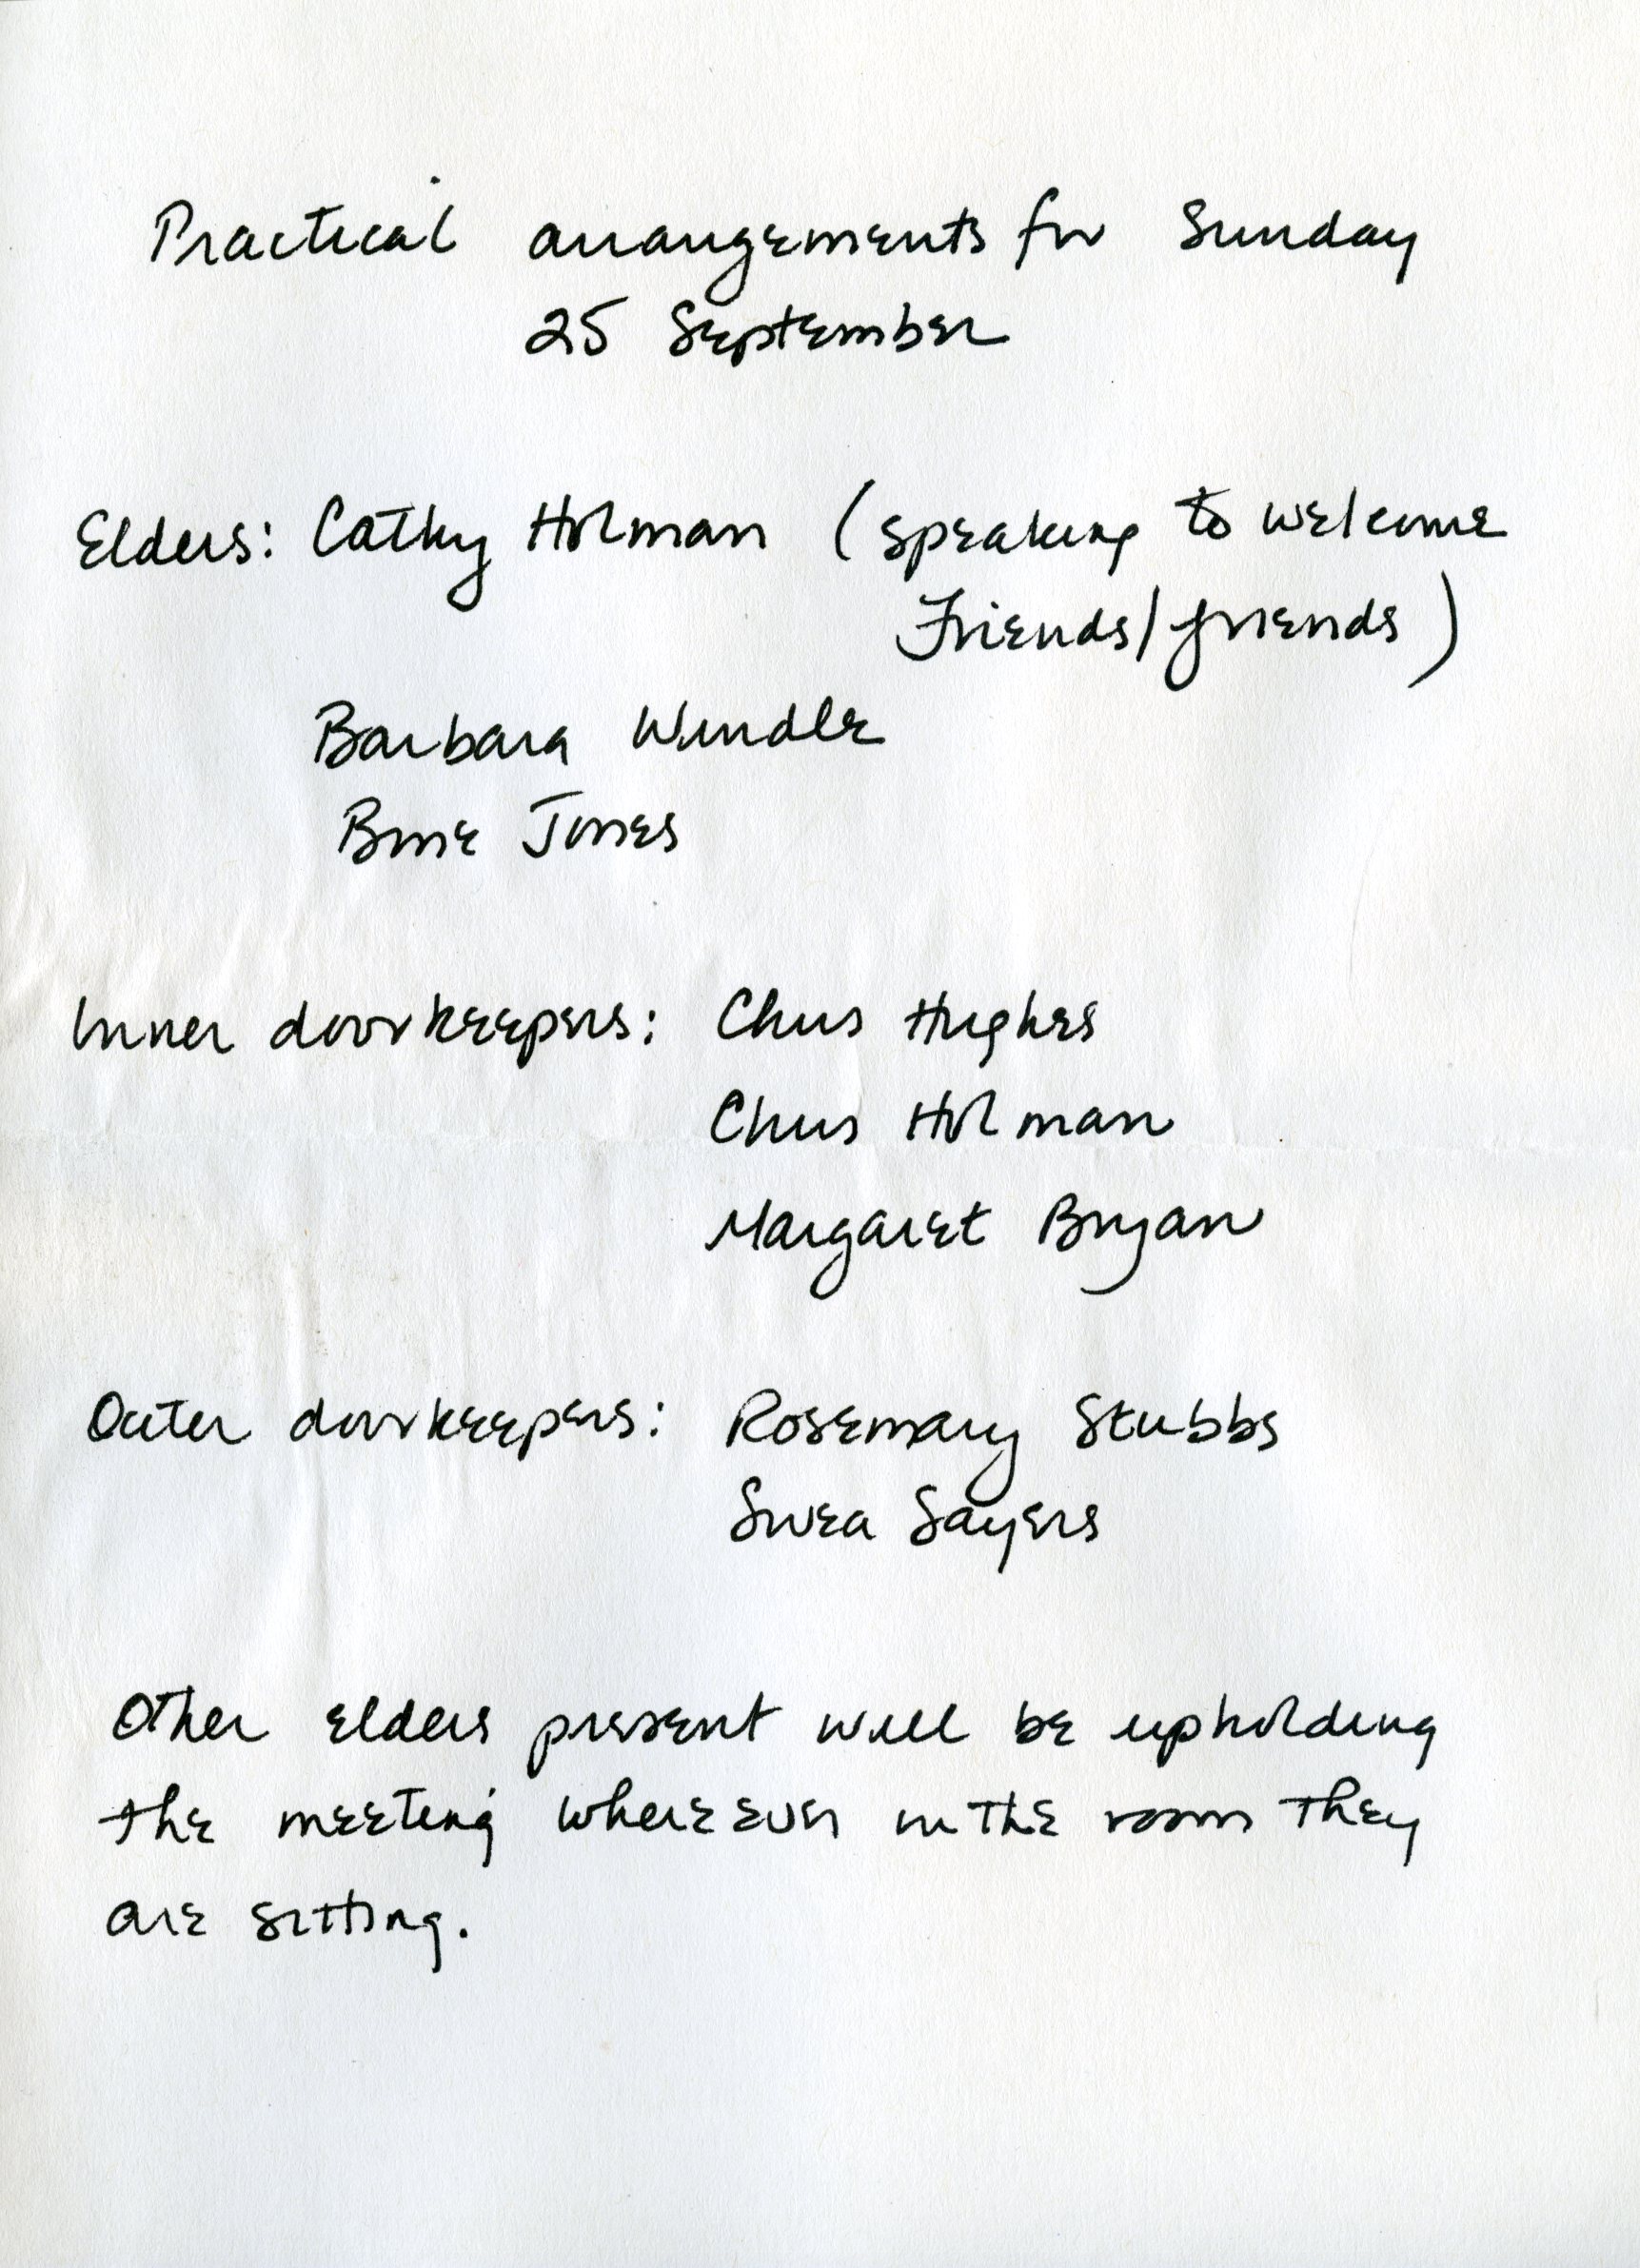 Practical arrangements for Sunday
25 September
Elders: Cathy Holman (speaking to welcome
Friends/friends)
Barbara Windle
Jones
Inner doorkeepers: Chris Hughes
Chris Holman
Margaret Bryan
Outer doorkeepers: Rosemary Stubbs
Swea Sayers
Other elders present will be upholding
the meeting whereever in the room they
are sitting.